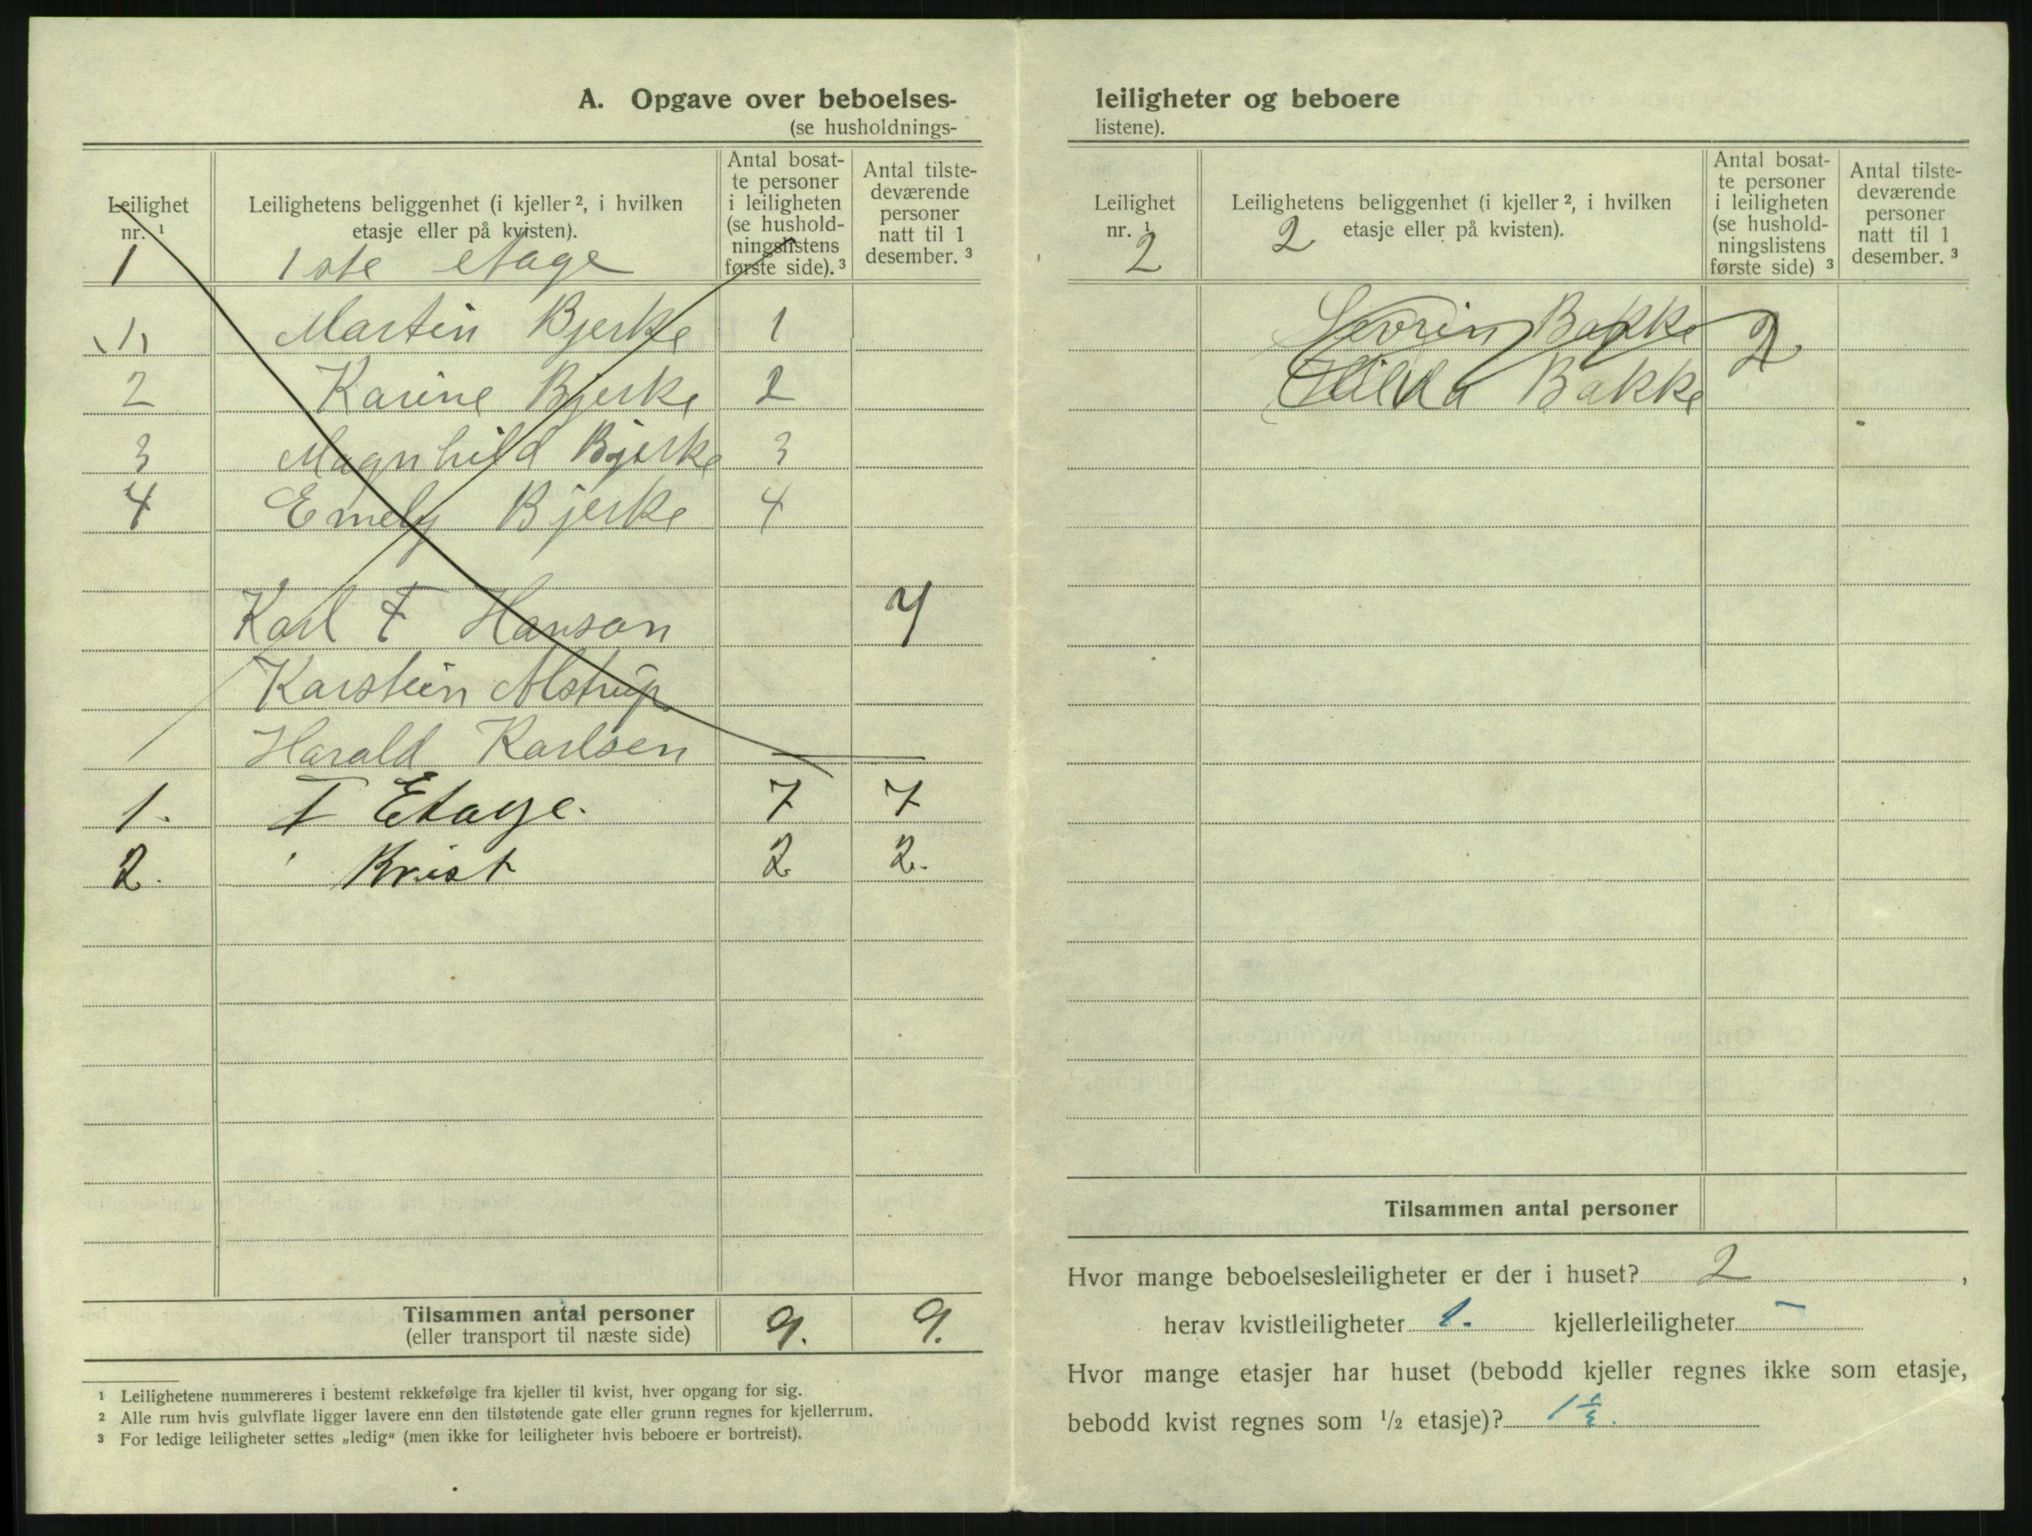 A. Opgave over beboelses-
(se husholdnings-
Leilighet nr. ¹
Leilighetens beliggenhet (i kjeller ², i hvilken etasje eller på kvisten).
Antal bosat-
te personer
i leiligheten
(se hushold-
ningslistens
første side). ³
Antal tilste-
deværende
personer
natt til 1
desember. ³
1 1ste etage
1 Martin Bjerke 1
2 Karine Bjerke 2
3 Magnhild Bjerke 3
4 Emely Bjerke 4
Karl F Hanson 7
Karstein Alstrup
Harald Karlsen
1. I Etage. 7 7
2. Kvist 2 2.
Tilsammen antal personer 9. 9.
(eller transport til næste side)
¹ Leilighetene nummereres i bestemt rekkefølge fra kjeller til kvist, hver opgang for sig.
² Alle rum hvis gulvflate ligger lavere enn den tilstøtende gate eller grunn regnes for kjellerrum.
³ For ledige leiligheter settes „ledig“ (men ikke for leiligheter hvis beboere er bortreist).
leiligheter og beboere
listene).
Leilighet nr. ¹
Leilighetens beliggenhet (i kjeller ², i hvilken etasje eller på kvisten).
Antal bosat-
te personer
i leiligheten
(se hushold-
ningslistens
første side) ³
Antal tilste-
deværende
personer
natt til 1
desember. ³
2 2
Sevrin Bakke 2
Hilda Bakke
Tilsammen antal personer
Hvor mange beboelsesleiligheter er der i huset? 2 ,
herav kvistleiligheter 1. kjellerleiligheter –
Hvor mange etasjer har huset (bebodd kjeller regnes ikke som etasje,
bebodd kvist regnes som ½ etasje)? 1½.